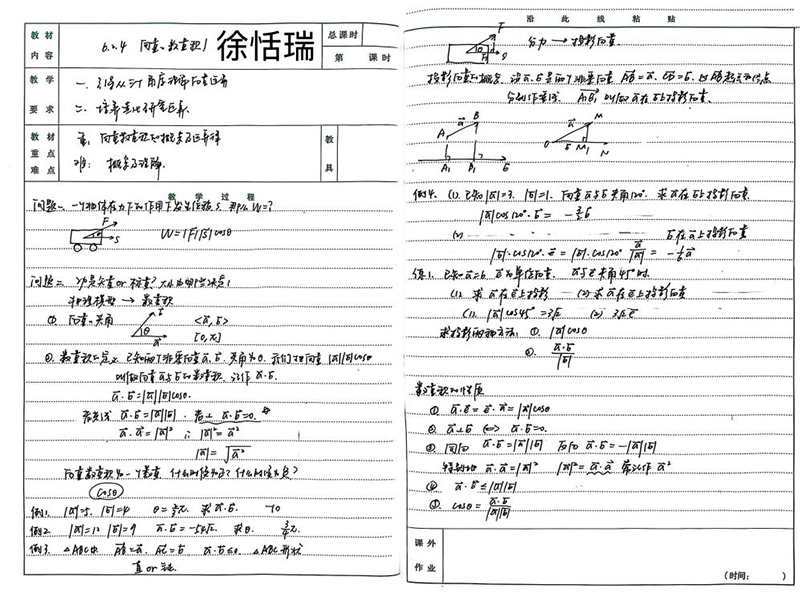 教材内容
6.2.4 向量的数量积1
徐恬瑞
总课时
第 课时
教学要求
教材重点难点
重:向量数量积的概念及运算律
难:概念及理解
教具
教学过程
问题一、一个物体在力F的作用下发生位移s,那么W=?
F θ s
W=|F||s|cosθ
问题二、功是矢量 or 标量?大小由哪些决定?
物理模型 → 数量积
① 向量的夹角 <a,b>
[0,π]
② 数量积的定义 已知两个非零向量a,b,夹角为θ,我们把向量|a||b|cosθ
叫做向量a与b的数量积,记作a·b.
a·b=|a||b|cosθ.
a·b=|a||b| a·b=0.
a·a=|a|² ∴|a|²=a²
|a|=√a²
向量数量积为一个数量,什么时候为正?什么时候为负?
cosθ
例1. |a|=5. |b|=4 θ=⅔π. 求a·b. -10
例2. |a|=12 |b|=9 a·b=-54√2. 求θ. ¾π.
例3. △ABC中. AB=a. AC=b a·b≤0. △ABC形状
直 or 钝.
沿此线粘贴
F θ F₁ s 分力→投影向量.
投影向量的概念:设a,b是两个非零向量 AB=a. CD=b.
A₁B₁ 叫做a在b上投影向量.
A B a A₁ B₁ b
a M O b M₁ N
例4. (1). 已知|a|=3. |b|=1. 向量a与b夹角120°. 求a在b上投影向量
|a|cos120°·b = -3/2 b
(2) b在a上投影向量
|b|·cos120°·e = |b|·cos120° a/|a| = -1/6 a
练1. 已知|a|=6 e为单位向量. a与e夹角45°时.
(1). 求a在e上投影 (2) 求a在e上投影向量
(1). |a|cos45°=3√2 (2) 3√2 e
求投影的两种方法:① |a|cosθ
② a·b/|b|
数量积的性质
① a·e=e·a=|a|cosθ
② a⊥b ⇔ a·b=0.
③ 同向 a·b=|a||b| 反向 a·b=-|a||b|
特别地 a·a=|a|² |a|²=a·a 常记作a²
④ a·b≤|a||b|
⑤ cosθ=a·b/|a||b|
课外作业
(时间: )